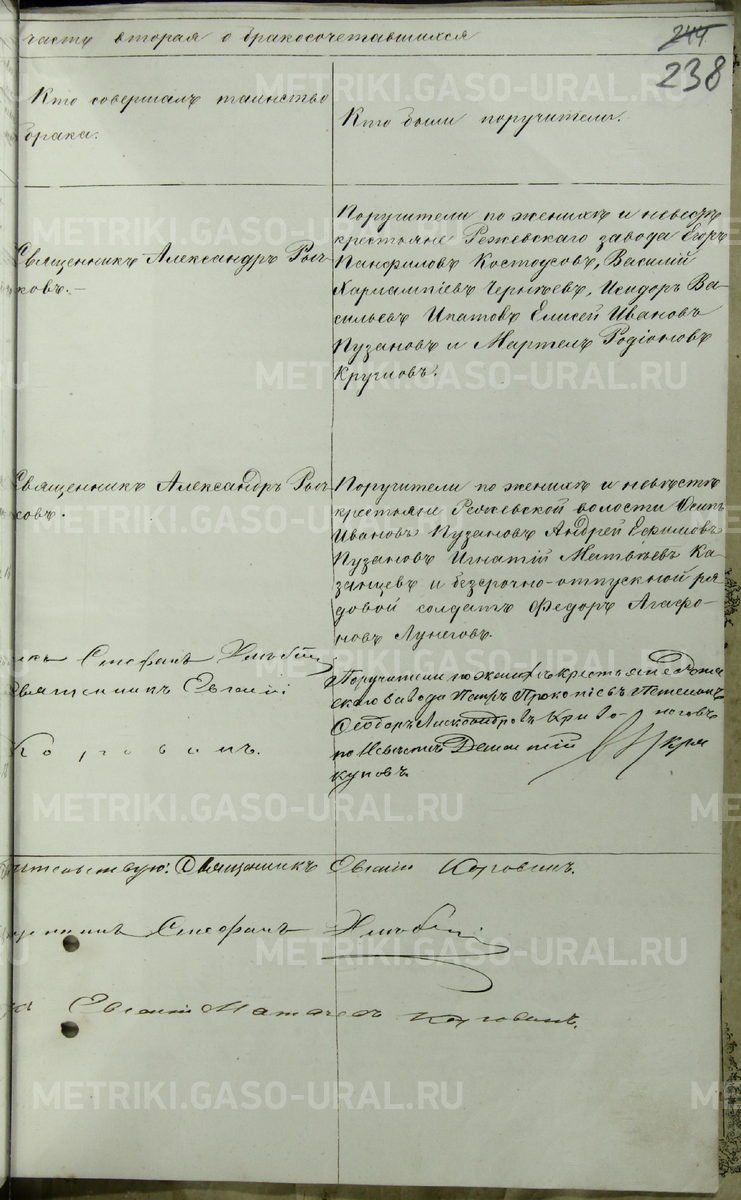 часть вторая о бракосочетавшихся
244
238
Кто совершалъ таинство
брака.
Кто были поручители.
Священникъ Александръ Рыч-
ковъ.
Поручители по женихѣ и невѣстѣ
крестьяне Режевскаго завода Егоръ
Панфиловъ Костоусовъ, Василій
Харлампіевъ Чернѣевъ, Исидоръ Ва-
сильевъ Ипатовъ Елисей Ивановъ
Пузановъ и Мартелъ Родіоновъ
Кругловъ.
Священникъ Александръ Рыч-
ковъ.
Поручители по женихѣ и невѣстѣ
крестьяне Режевской волости Осипъ
Ивановъ Пузановъ Андрей Ефимовъ
Пузановъ Игнатій Матвѣевъ Ка-
занцевъ и безсрочно-отпускной ря-
довой солдатъ Федоръ Агафо-
новъ Лунеговъ.
Стефанъ
Священникъ Евгеній
Коровинъ.
Поручители по женихѣ крестьяне
скаго завода Петръ Прокопіевъ
Ѳеодоръ Александровъ Криво- ноговъ
по Невѣстѣ
куповъ
Священникъ Евгеній Коровинъ.
Стефанъ
Евгеній Матвѣевъ Коровинъ.
METRIKI.GASO-URAL.RU